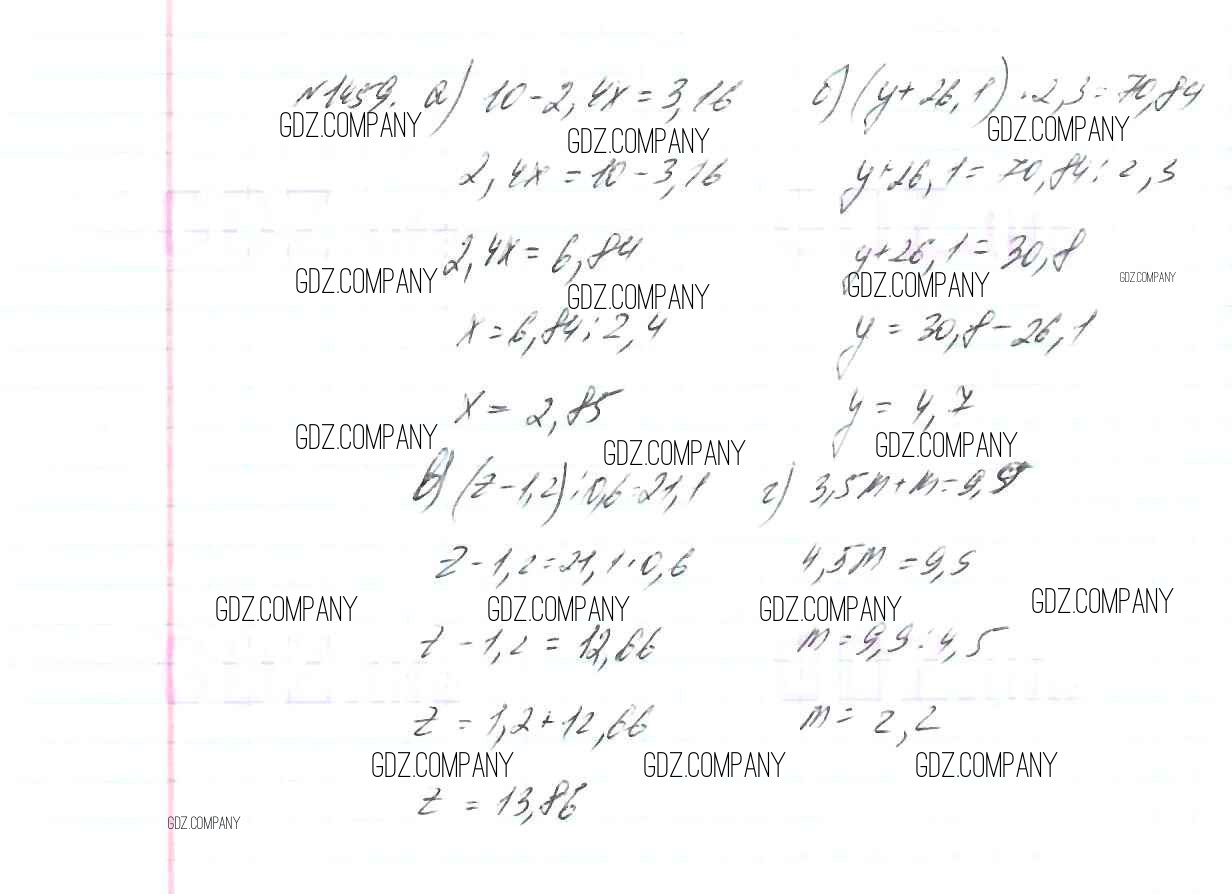 №1459. а) 10-2,4x=3,16 б) (y+26,1)·2,3=70,84
GDZ.COMPANY GDZ.COMPANY GDZ.COMPANY
2,4x=10-3,16 y+26,1=70,84:2,3
2,4x=6,84 y+26,1=30,8
GDZ.COMPANY GDZ.COMPANY GDZ.COMPANY GDZ.COMPANY
x=6,84:2,4 y=30,8-26,1
x=2,85 y=4,7
GDZ.COMPANY GDZ.COMPANY GDZ.COMPANY
в) (z-1,2):0,6=21,1 г) 3,5m+m=9,9
z-1,2=21,1·0,6 4,5m=9,9
GDZ.COMPANY GDZ.COMPANY GDZ.COMPANY GDZ.COMPANY
z-1,2=12,66 m=9,9:4,5
z=1,2+12,66 m=2,2
GDZ.COMPANY GDZ.COMPANY GDZ.COMPANY
z=13,86
GDZ.COMPANY